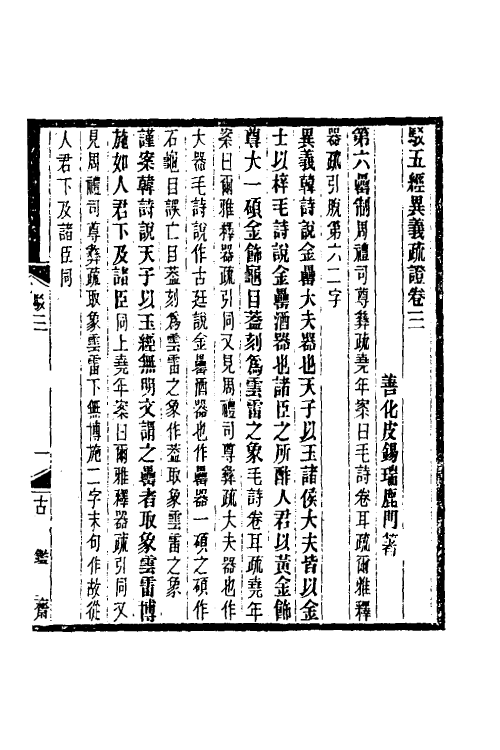 駁五經異義疏證卷三
善化皮錫瑞鹿門著
第六罍制周禮司尊彝疏堯年案曰毛詩卷耳疏爾雅釋
器疏引脫第六二字
異義韓詩說金罍大夫器也天子以玉諸侯大夫皆以金
士以梓毛詩說金罍酒器也諸臣之所酢人君以黃金飾
尊大一碩金飾龜目蓋刻爲雲雷之象毛詩卷耳疏堯年
案曰爾雅釋器疏引同又見周禮司尊彝疏大夫器也作
大器毛詩說作古廷說金罍酒器也作罍器一碩之碩作
石龜目誤亡目蓋刻爲雲雷之象作蓋取象雲雷之象
謹案韓詩說天子以玉經無明文謂之罍者取象雲雷博
施如人君下及諸臣同上堯年案曰爾雅釋器疏引同又
見周禮司尊彝疏取象雲雷下無博施二字末句作故從
人君下及諸臣同
駁三
一
古鑑齋